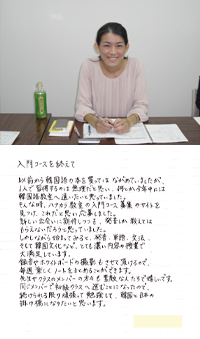 入門コースを終えて
以前から韓国語の本を買っては ながめていましたが、
1人で習得するのは無理だと思い、何とか今年中には
韓国語教室へ通いたいと思っていました。
そんな時、ハナカラ教室の入門コース募集のサイトを
見つけ、これだと思い応募しました。
新しい出会いに期待しつつも、発音しか教えては
もらえないだろうと思っていました。
しかしながら始まってみると、発音、単語、文法、
そして韓国文化など、とても濃い内容の授業で
大満足しています。
録音やホワイトボードの撮影もさせて頂けるので、
毎週楽しくノートをまとめることができます。
先生やクラスのメンバーの方々も素敵な人たちで嬉しいです。
同じメンバーで初級クラスへ進むことになったので、
続けられる限り頑張って勉強して、韓国と日本の
掛け橋になりたいと思います。